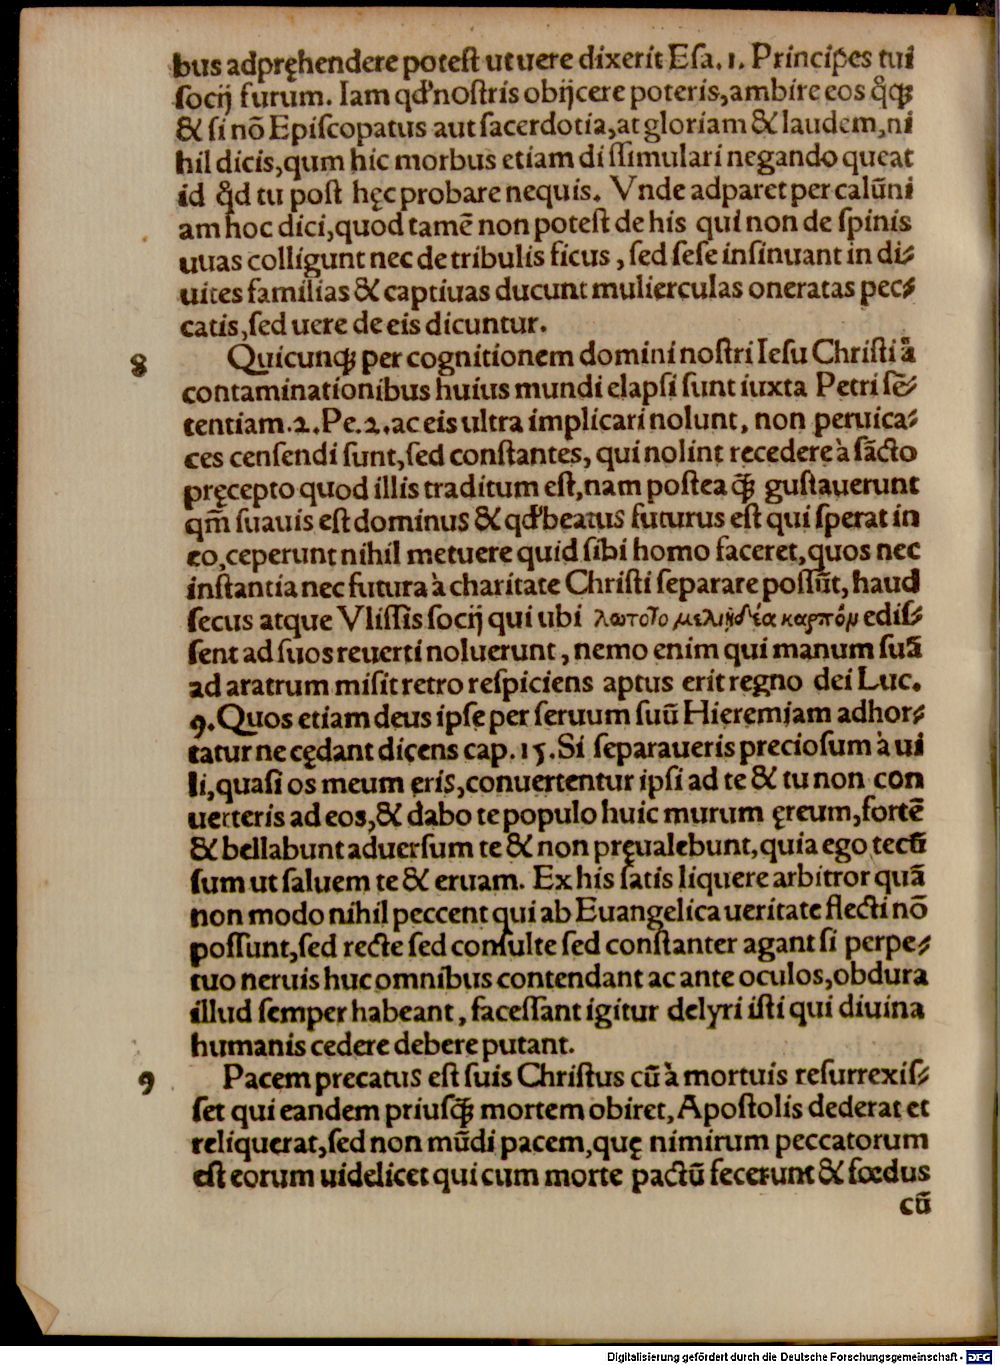 bus adpręhendere potest ut uere dixerit Esa. 1. Principes tui
socij furum. Iam qđ nostris obijcere poteris, ambire eos q̊qꝫ
& si nō Episcopatus aut sacerdotia, at gloriam & laudem, ni
hil dicis, qum hic morbus etiam dissimulari negando queat
id q̊d tu post hęc probare nequis. Vnde adparet per calūni
am hoc dici, quod tamē non potest de his qui non de spinis
uuas colligunt nec de tribulis ficus, sed sese insinuant in di⸗
uites familias & captiuas ducunt mulierculas oneratas pec⸗
catis, sed uere de eis dicuntur.
8 Quicunqꝫ per cognitionem domini nostri Iesu Christi à
contaminationibus huius mundi elapsi sunt iuxta Petri sē⸗
tentiam. 2. Pe. 2. ac eis ultra implicari nolunt, non peruica⸗
ces censendi sunt, sed constantes, qui nolint recedere à sācto
pręcepto quod illis traditum est, nam postea q̄ꝫ gustauerunt
qm̄ suauis est dominus & qđ beatus futurus est qui sperat in
eo, ceperunt nihil metuere quid sibi homo faceret, quos nec
instantia nec futura à charitate Christi separare possūt, haud
secus atque Vlissis socij qui ubi λωτοῖο μελιηδέα καρπόν edis⸗
sent ad suos reuerti noluerunt, nemo enim qui manum suā
ad aratrum misit retro respiciens aptus erit regno dei Luc.
9. Quos etiam deus ipse per seruum suū Hieremiam adhor⸗
tatur ne cędant dicens cap. 15. Si separaueris preciosum à ui
li, quasi os meum eris, conuertentur ipsi ad te & tu non con
uerteris ad eos, & dabo te populo huic murum ęreum, fortē
& bellabunt aduersum te & non pręualebunt, quia ego tecū
sum ut saluem te & eruam. Ex his satis liquere arbitror quā
non modo nihil peccent qui ab Euangelica ueritate flecti nō
possunt, sed recte sed consulte sed constanter agant si perpe⸗
tuo neruis huc omnibus contendant ac ante oculos, obdura
illud semper habeant, facessant igitur delyri isti qui diuina
humanis cedere debere putant.
9 Pacem precatus est suis Christus cū à mortuis resurrexis⸗
set qui eandem priusq̄ꝫ mortem obiret, Apostolis dederat et
reliquerat, sed non mūdi pacem, quę nimirum peccatorum
est eorum uidelicet qui cum morte pactū fecerunt & fœdus
cū
Digitalisierung gefördert durch die Deutsche Forschungsgemeinschaft - DFG